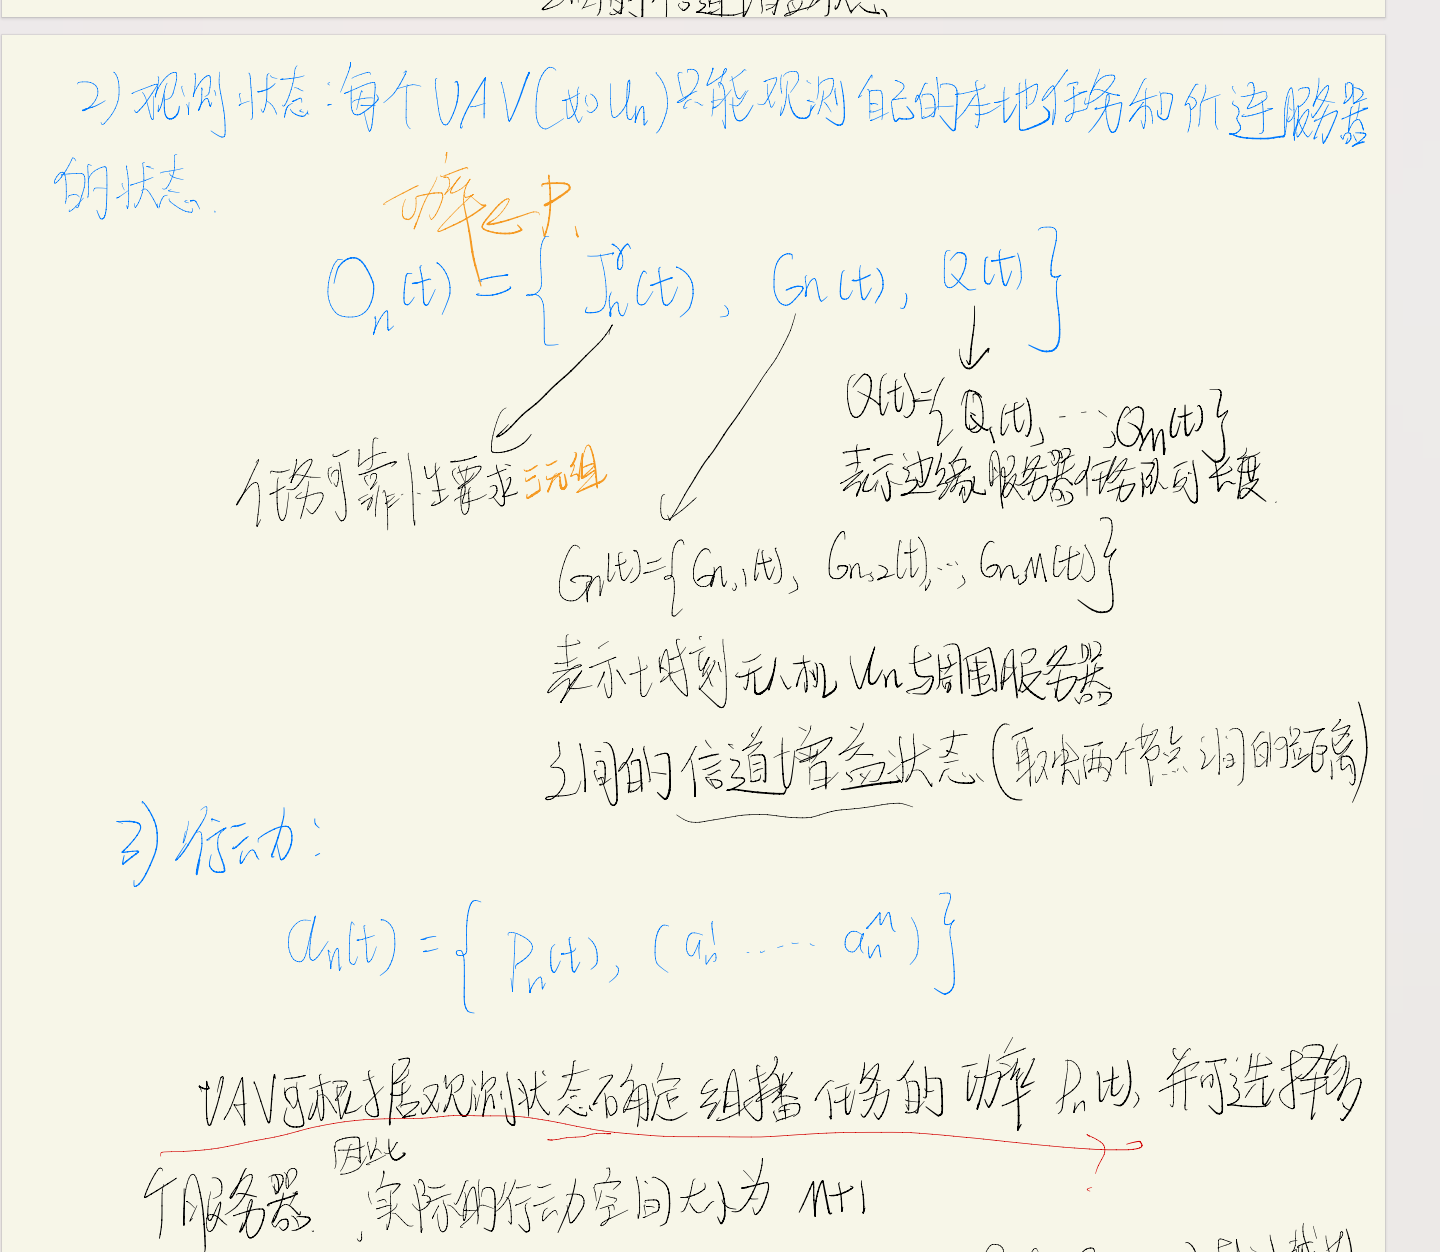 之间的信道增益状态
2) 观测状态:每个UAV(如Un)只能观测自己的本地任务和所连服务器
的状态.
功率 ← P.
On(t) = { Jn^r(t), Gn(t), Q(t) }
Q(t)={Q1(t), ···, Qm(t)}
表示边缘服务器任务队列长度.
任务可靠性要求三元组
Gn(t)={Gn,1(t), Gn,2(t), ···, Gn,M(t)}
表示t时刻无人机Un与周围服务器
之间的信道增益状态(取决两个节点之间的距离)
3) 行动:
an(t) = { Pn(t), (an^1 ······ an^M) }
UAV可根据观测状态确定组播任务的功率Pn(t), 并可选择多
?
个服务器. 因此, 实际的行动空间大小为 M+1